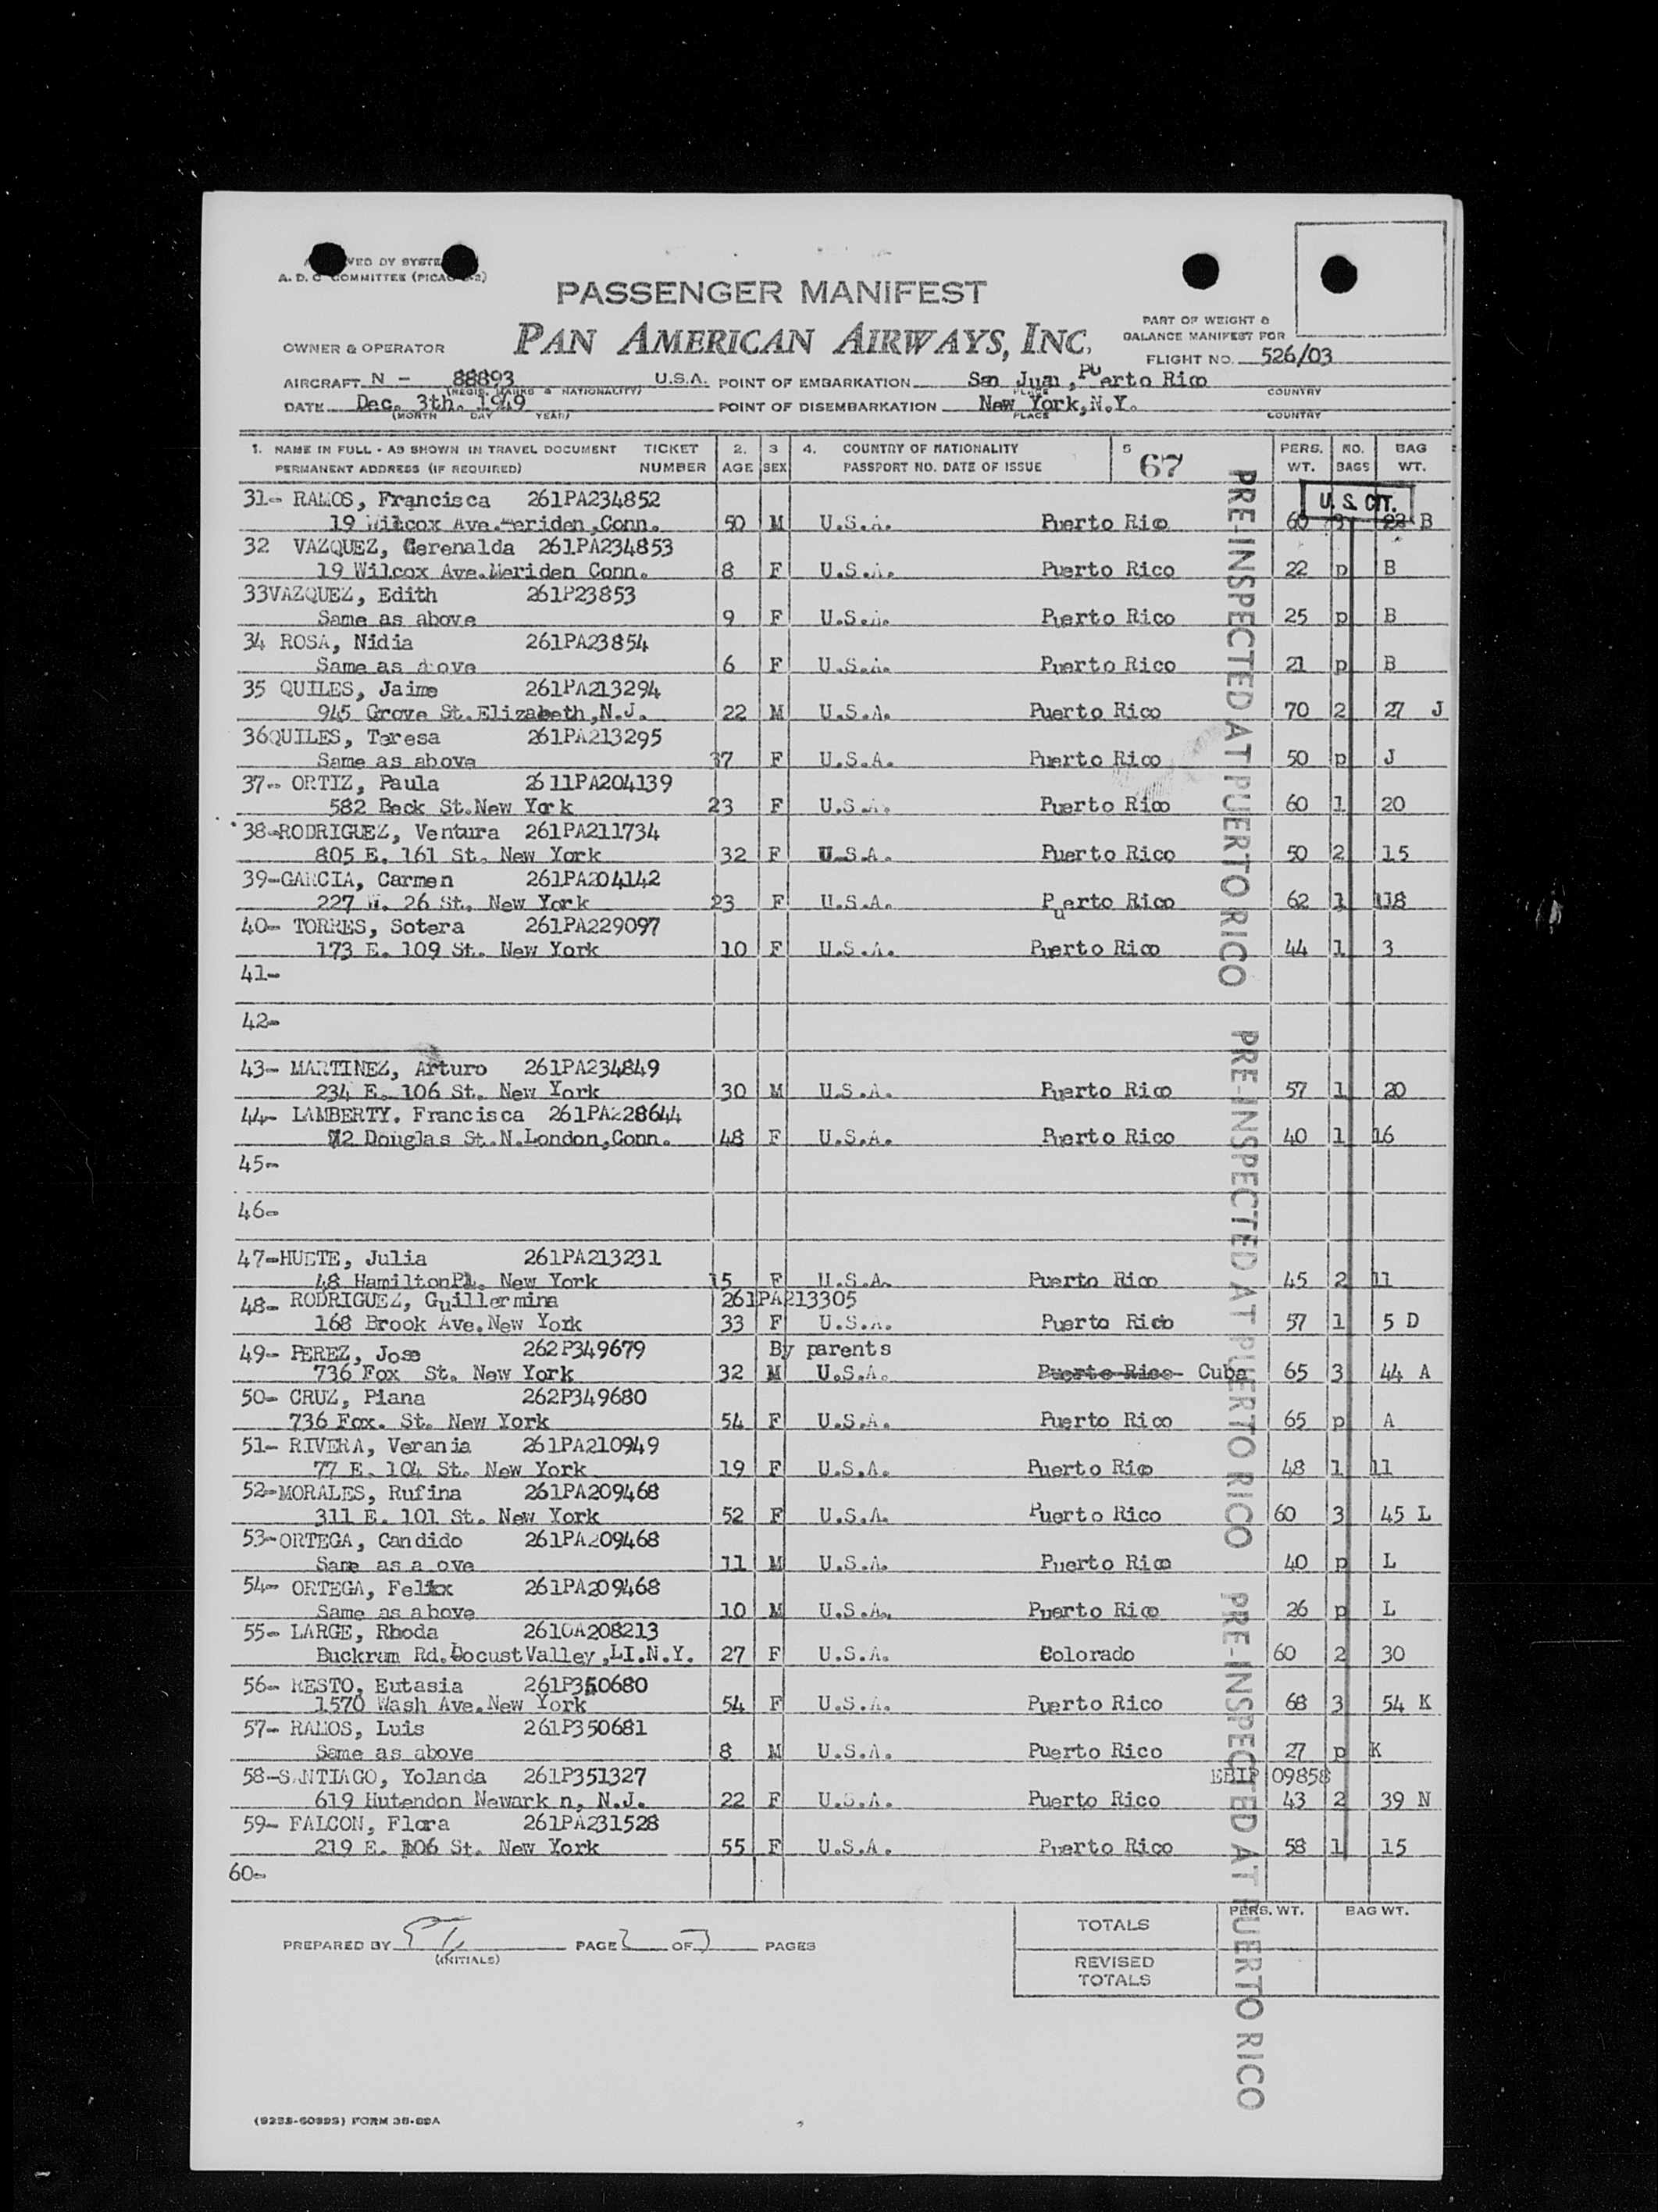 COMMITTEE (PICAO
PASSENGER MANIFEST
PAN AMERICAN AIRWAYS, INC.
OWNER & OPERATOR
PART OF WEIGHT &
BALANCE MANIFEST FOR
FLIGHT NO. 526/03
AIRCRAFT N - 88893 U.S.A. POINT OF EMBARKATION San Juan, Puerto Rico
(REGIS. MARKS & NATIONALITY) PLACE COUNTRY
DATE Dec. 3th. 1949 POINT OF DISEMBARKATION New York, N.Y.
(MONTH DAY YEAR) PLACE COUNTRY
1. NAME IN FULL - AS SHOWN IN TRAVEL DOCUMENT TICKET 2. 3 4. COUNTRY OF NATIONALITY 5 67 PERS. NO. BAG
PERMANENT ADDRESS (IF REQUIRED) NUMBER AGE SEX PASSPORT NO. DATE OF ISSUE WT. BAGS WT.
U.S. CIT.
31- RAMOS, Francisca 261PA234852
19 Wilcox Ave. Meriden, Conn. 50 M U.S.A. Puerto Rico 60 B
32 VAZQUEZ, Gerenalda 261PA234853
19 Wilcox Ave. Meriden Conn. 8 F U.S.A. Puerto Rico 22 p B
33VAZQUEZ, Edith 261P23853
Same as above 9 F U.S.A. Puerto Rico 25 p B
34 ROSA, Nidia 261PA23854
Same as above 6 F U.S.A. Puerto Rico 21 p B
35 QUILES, Jaime 261PA213294
945 Grove St. Elizabeth, N.J. 22 M U.S.A. Puerto Rico 70 2 27 J
36QUILES, Teresa 261PA213295
Same as above 37 F U.S.A. Puerto Rico 50 p J
37- ORTIZ, Paula 2611PA204139
582 Beck St. New York 23 F U.S.A. Puerto Rico 60 1 20
38-RODRIGUEZ, Ventura 261PA211734
805 E. 161 St. New York 32 F U.S.A. Puerto Rico 50 2 15
39-GARCIA, Carmen 261PA204142
227 W. 26 St. New York 23 F U.S.A. Puerto Rico 62 1 18
40- TORRES, Sotera 261PA229097
173 E. 109 St. New York 10 F U.S.A. Puerto Rico 44 1 3
41-
42-
43- MARTINEZ, Arturo 261PA234849
234 E. 106 St. New York 30 M U.S.A. Puerto Rico 57 1 20
44- LAMBERTY. Francisca 261PA228644
72 Douglas St. N. London, Conn. 48 F U.S.A. Puerto Rico 40 1 16
45-
46-
47-HUETE, Julia 261PA213231
48 Hamilton Pl. New York 15 F U.S.A. Puerto Rico 45 2 11
48- RODRIGUEZ, Guillermina 261PA213305
168 Brook Ave. New York 33 F U.S.A. Puerto Rico 57 1 5 D
49- PEREZ, Jose 262P349679 By parents
736 Fox St. New York 32 M U.S.A. Puerto Rico Cuba 65 3 44 A
50- CRUZ, Piana 262P349680
736 Fox. St. New York 54 F U.S.A. Puerto Rico 65 p A
51- RIVERA, Verania 261PA210949
77 E. 104 St. New York 19 F U.S.A. Puerto Rico 48 1 11
52-MORALES, Rufina 261PA209468
311 E. 101 St. New York 52 F U.S.A. Puerto Rico 60 3 45 L
53-ORTEGA, Candido 261PA209468
Same as a ove 11 M U.S.A. Puerto Rico 40 p L
54- ORTEGA, Felix 261PA209468
Same as above 10 M U.S.A. Puerto Rico 26 p L
55- LARGE, Rhoda 2610A208213
Buckram Rd. Locust Valley, LI.N.Y. 27 F U.S.A. Colorado 60 2 30
56- RESTO, Eutasia 261P350680
1570 Wash Ave. New York 54 F U.S.A. Puerto Rico 68 3 54 K
57- RAMOS, Luis 261P350681
Same as above 8 M U.S.A. Puerto Rico 27 p K
58-SANTIAGO, Yolanda 261P351327 09858
619 Hutendon Newark n. N.J. 22 F U.S.A. Puerto Rico 43 2 39 N
59- FALCON, Flora 261PA231528
219 E. 106 St. New York 55 F U.S.A. Puerto Rico 58 1 15
60-
PRE-INSPECTED AT PUERTO RICO
PRE-INSPECTED AT PUERTO RICO
PRE-INSPECTED AT PUERTO RICO
PERS. WT. BAG WT.
TOTALS
PREPARED BY PAGE 2 OF PAGES
(INITIALS)
REVISED
TOTALS